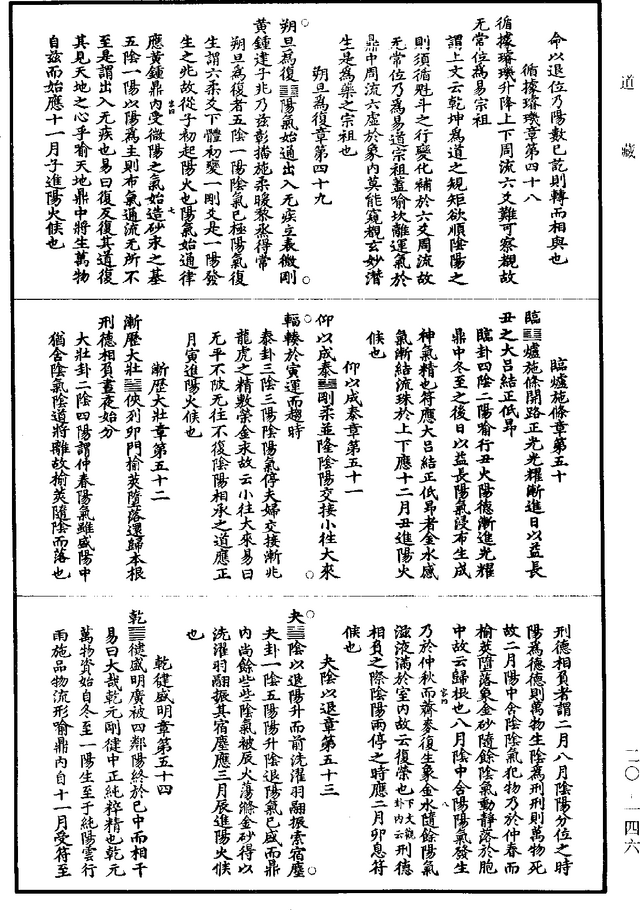 道藏
命以退位乃陽數已訖則轉而相與也
循據璿璣章第四十八
循據璿璣升降上下周流六爻難可察覩故
无常位為易宗祖
謂上文云乾坤為道之規矩欲順陰陽之
則須循魁斗之行變化輔於六爻周流故
无常位乃為易道宗祖蓋喻坎離運氣於
鼎中周流六虛於象內莫能窺覩玄妙潛
生是為藥之宗祖也
朔旦為復章第四十九
朔旦為復䷗陽氣始通出入无疾立表微剛
黃鍾建子兆乃茲彰播施柔暖黎蒸得常
朔旦為復者五陰一陽陰氣已極陽氣復
生謂六柔爻下體初變一剛爻是一陽發
生之兆故從子初起陽火也陽氣始通律
應黃鍾鼎內受微陽之氣始造砂汞之基
五陰一陽以陽為主則布氣通流无所不
至是謂出入无疾也易曰復反復其道復
其見天地之心乎喻天地鼎中將生萬物
自茲而始應十一月子進陽火候也
臨爐施條章第五十
臨䷒爐施條開路正光光耀漸進日以益長
丑之大呂結正低昂
臨卦四陰二陽喻行丑火陽德漸進光耀
鼎中冬至之後日以益長陽氣浸布生成
神氣精也符應大呂結正低昂者金水感
氣漸結流珠於上下應十二月丑進陽火
候也
仰以成泰章第五十一
仰以成泰䷊剛柔並隆陰陽交接小往大來
輻輳於寅運而趨時
泰卦三陰三陽陰陽氣停夫婦交接漸兆
龍虎之精數榮金汞故云小往大來易曰
无平不陂无往不復陰陽相承之道應正
月寅進陽火候也
漸歷大壯章第五十二
漸歷大壯䷡俠列卯門榆莢墮落還歸本根
刑德相負晝夜始分
大壯卦二陰四陽謂仲春陽氣雖盛陽中
猶含陰氣陰道將離故榆莢隨陰而落也
刑德相負者謂二月八月陰陽分位之時
陽為德德則萬物生陰為刑刑則萬物死
故二月陽中含陰陰氣犯物乃於仲春而
榆莢墮落象金砂隨餘陰氣動靜落於胞
中故云歸根也八月陰中含陽陽氣發生
乃於仲秋而薺麥復生象金水隨餘陽氣
滋液滿於室內故云復榮也下文觀卦內云刑德
相負之際陰陽兩停之時應二月卯息符
候也
夬陰以退章第五十三
夬䷪陰以退陽升而前洗濯羽翮振索宿塵
夬卦一陰五陽陽升陰退陽氣已盛而鼎
內尚餘些些陰氣被辰火蕩滌金砂得以
洗濯羽翮振其宿塵應三月辰進陽火候
也
乾健盛明章第五十四
乾䷀健盛明廣被四鄰陽終於巳中而相干
易曰大哉乾元剛健中正純粹精也乾元
萬物資始自冬至一陽生至于純陽雲行
雨施品物流形喻鼎內自十一月受符至
二〇·一四六